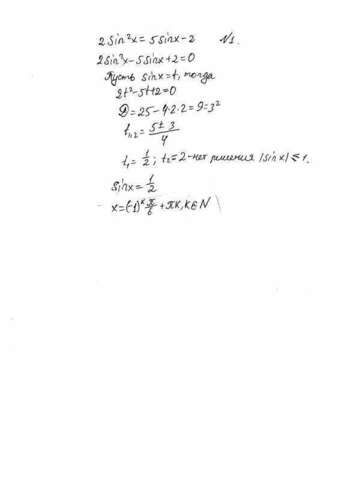 2sin²x = 5sinx - 2 N1.
2sin²x - 5sinx + 2 = 0
Пусть sinx = t, тогда
2t² - 5t + 2 = 0
D = 25 - 4·2·2 = 9 = 3²
t₁,₂ = (5 ± 3)/4
t₁ = 1/2; t₂ = 2 - нет решения |sinx| ≤ 1.
sinx = 1/2
x = (-1)ᵏ π/6 + πk, k ∈ N